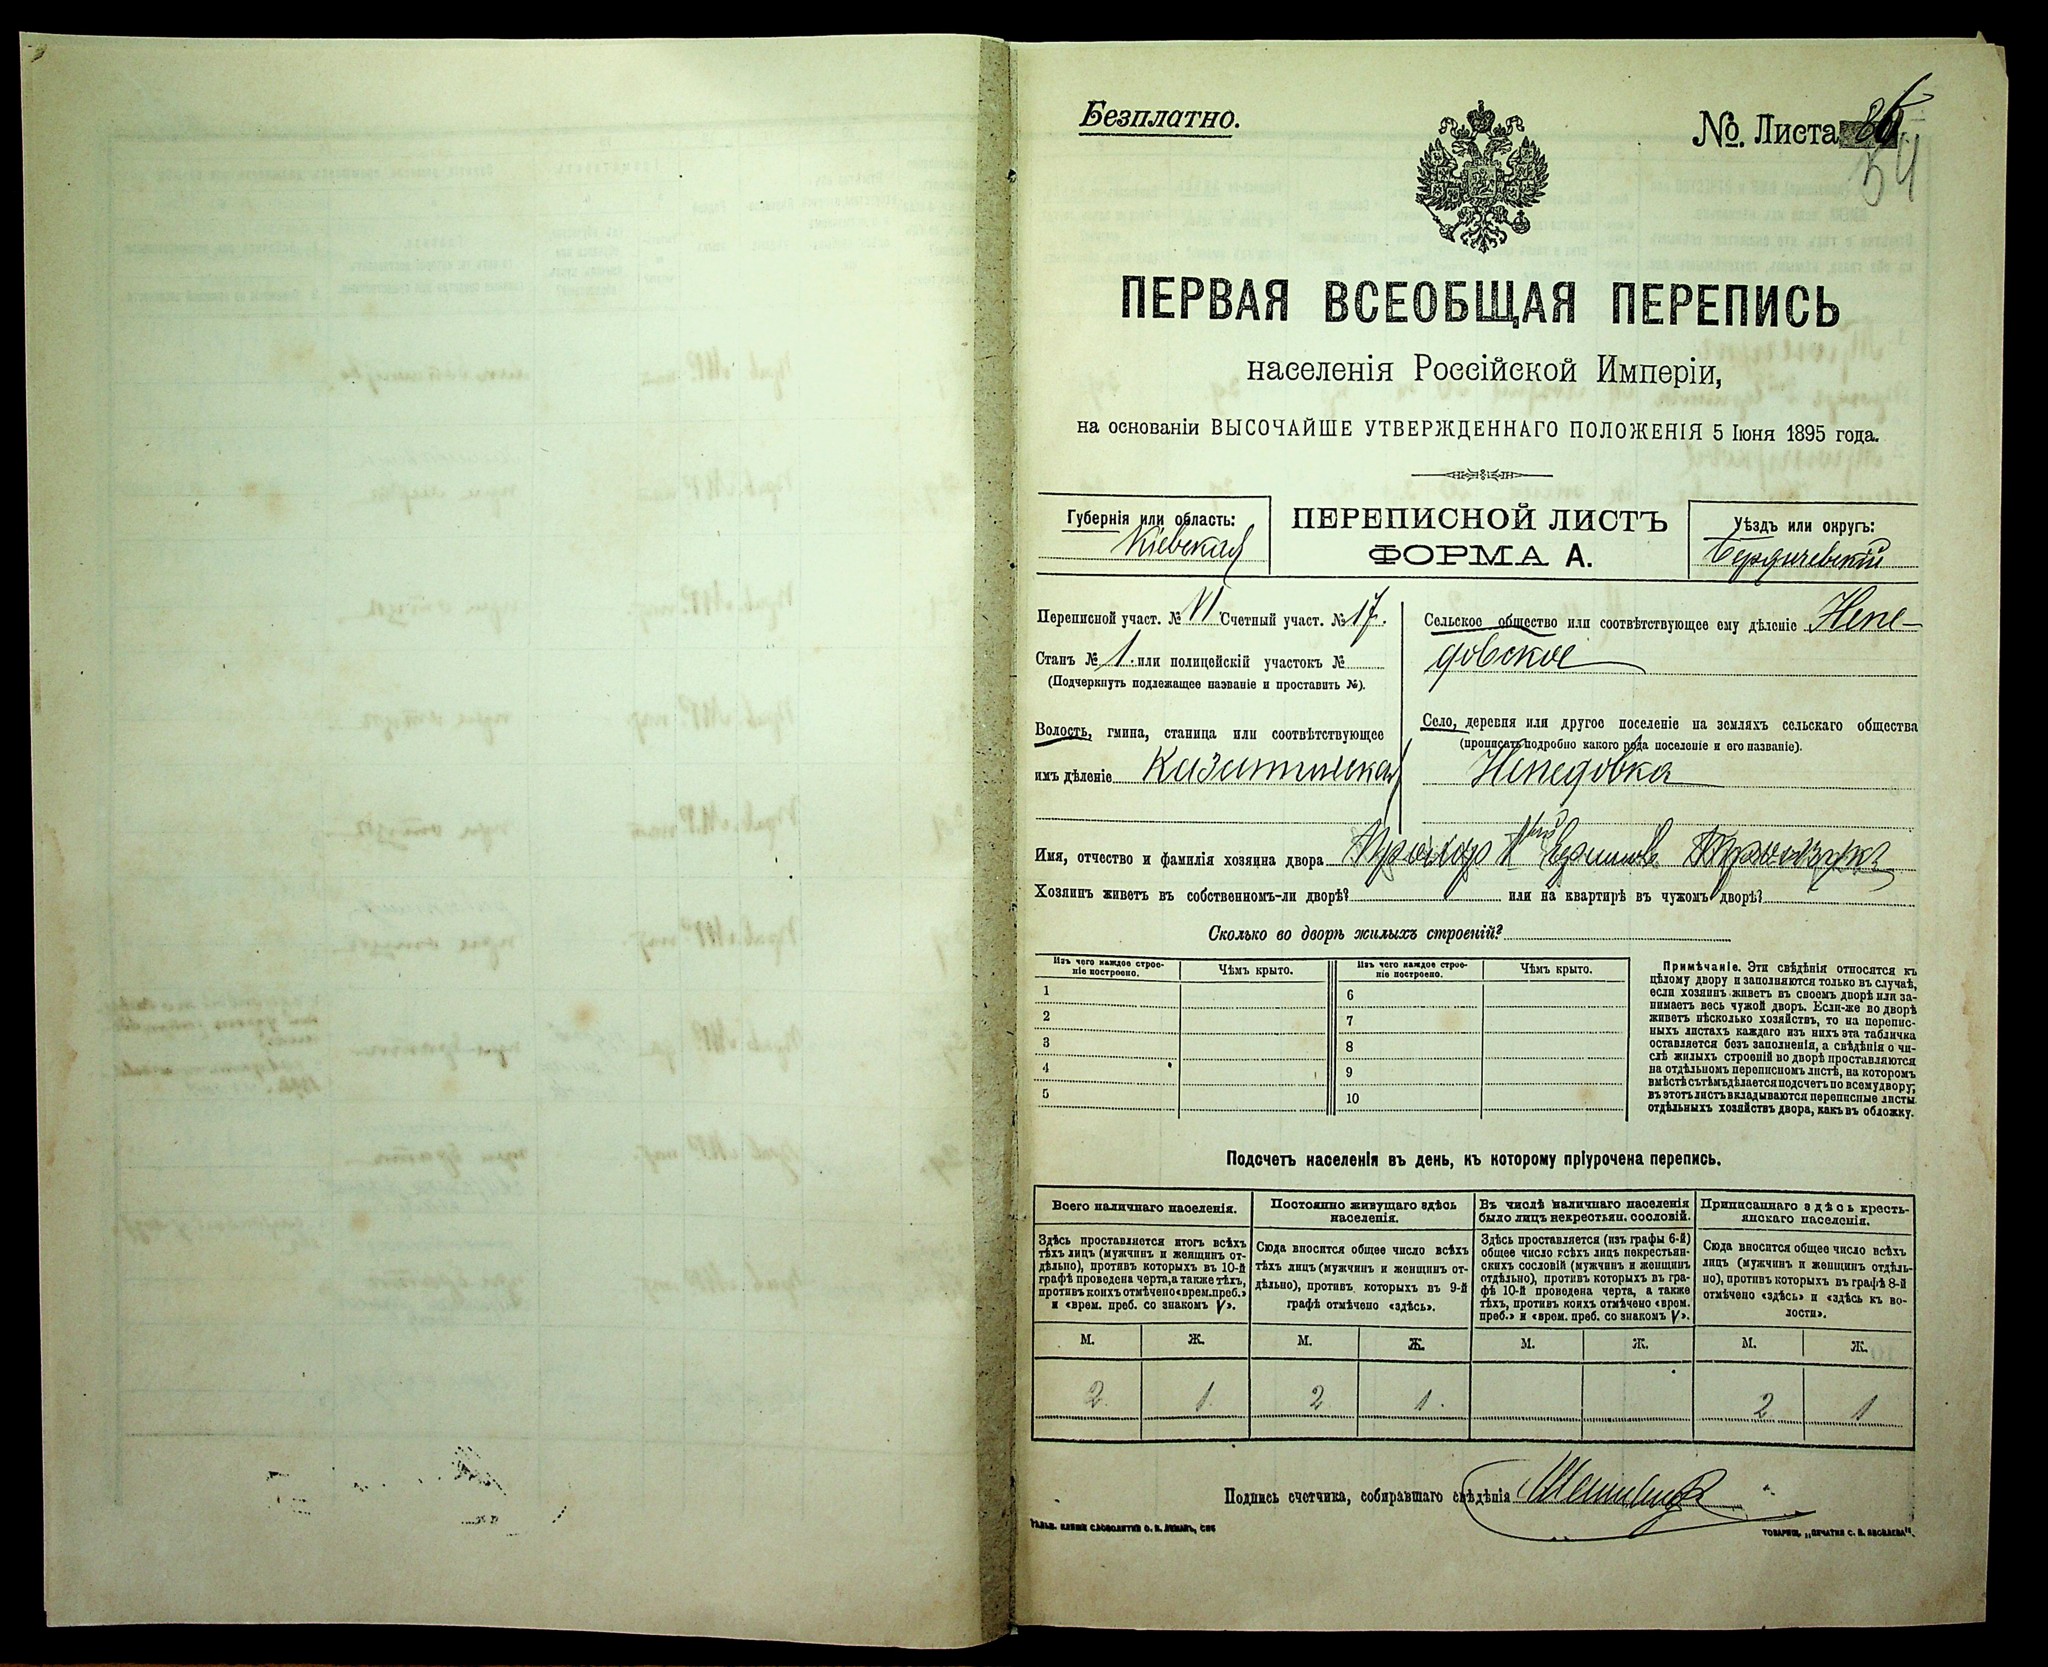 Безплатно.
№. Листа 8
54
ПЕРВАЯ ВСЕОБЩАЯ ПЕРЕПИСЬ
населенія Россійской Имперіи,
на основаніи ВЫСОЧАЙШЕ УТВЕРЖДЕННАГО ПОЛОЖЕНІЯ 5 Іюня 1895 года.
Губернія или область:
Кіевская
ПЕРЕПИСНОЙ ЛИСТЪ
ФОРМА А.
Уѣздъ или округъ:
Бердичевскій
Переписной участ. № VI Счетный участ. № 17.
Станъ № 1. или полицейскій участокъ №
(Подчеркнуть подлежащее названіе и проставить №).
Сельское общество или соотвѣтствующее ему дѣленіе Непе-
довское
Волость, гмина, станица или соотвѣтствующее
имъ дѣленіе Казатинская
Село, деревня или другое поселеніе на земляхъ сельскаго общества
(прописать подробно какого рода поселеніе и его названіе).
Непедовка
Имя, отчество и фамилія хозяина двора Прохор
Хозяинъ живетъ въ собственномъ-ли дворѣ? или на квартирѣ въ чужомъ дворѣ?
Сколько во дворѣ жилыхъ строеній?
Изъ чего каждое строе-
ніе построено.
Чѣмъ крыто.
Изъ чего каждое строе-
ніе построено.
Чѣмъ крыто.
1
2
3
4
5
6
7
8
9
10
Примѣчаніе. Эти свѣдѣнія относятся къ
цѣлому двору и заполняются только въ случаѣ,
если хозяинъ живетъ въ своемъ дворѣ или за-
нимаетъ весь чужой дворъ. Если-же во дворѣ
живетъ нѣсколько хозяйствъ, то на перепис-
ныхъ листахъ каждаго изъ нихъ эта табличка
оставляется безъ заполненія, а свѣдѣнія о чи-
слѣ жилыхъ строеній во дворѣ проставляются
на отдѣльномъ переписномъ листѣ, на которомъ
вмѣстѣ съ тѣмъ дѣлается подсчетъ по всему двору;
въ этотъ листъ вкладываются переписные листы
отдѣльныхъ хозяйствъ двора, какъ въ обложку.
Подсчетъ населенія въ день, къ которому пріурочена перепись.
Всего наличнаго населенія.
Здѣсь проставляется итогъ всѣхъ
тѣхъ лицъ (мужчинъ и женщинъ от-
дѣльно), противъ которыхъ въ 10-й
графѣ проведена черта, а также тѣхъ,
противъ коихъ отмѣчено «врем. преб.»
и «врем. преб. со знакомъ V».
Постоянно живущаго здѣсь
населенія.
Сюда вносится общее число всѣхъ
тѣхъ лицъ (мужчинъ и женщинъ от-
дѣльно), противъ которыхъ въ 9-й
графѣ отмѣчено «здѣсь».
Въ числѣ наличнаго населенія
было лицъ некрестьян. сословій.
Здѣсь проставляется (изъ графы 6-й)
общее число всѣхъ лицъ некрестьян-
скихъ сословій (мужчинъ и женщинъ
отдѣльно), противъ которыхъ въ гра-
фѣ 10-й проведена черта, а также
тѣхъ, противъ коихъ отмѣчено «врем.
преб.» и «врем. преб. со знакомъ V».
Приписаннаго здѣсь кресть-
янскаго населенія.
Сюда вносится общее число всѣхъ
лицъ (мужчинъ и женщинъ отдѣль-
но), противъ которыхъ въ графѣ 8-й
отмѣчено «здѣсь» и «здѣсь къ во-
лости».
М. Ж. М. Ж. М. Ж. М. Ж.
2 1 2 1 2 1
Подпись счетчика, собиравшаго свѣдѣнія
ГАЛЬВ. КЛИШЕ СЛОВОЛИТНИ О. И. ЛЕМАНЪ, СПБ
ТОВАРИЩ. „ПЕЧАТНЯ С. П. ЯКОВЛЕВА".